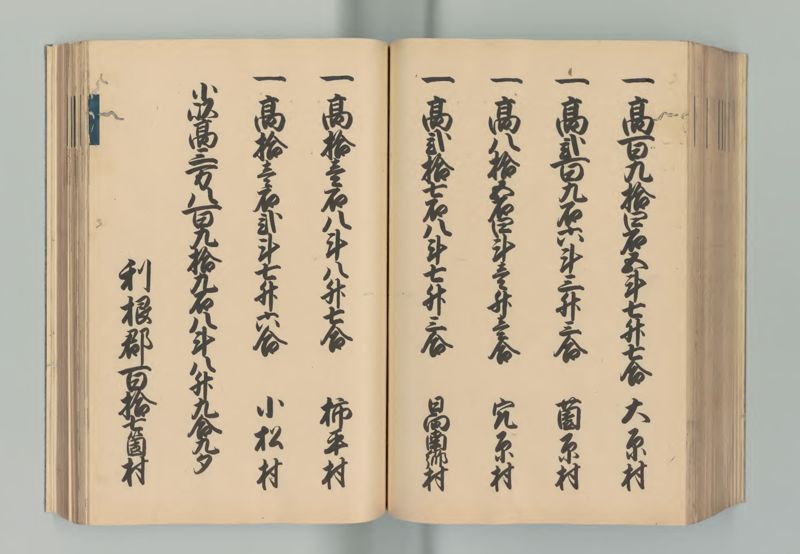 一 高百九拾四石五斗七升七合 大原村
一 高弐百九石六斗三升三合 薗原村
一 高八拾五石四斗壱升壱合 穴原村
一 高弐拾七石八斗七升三合 日向南郷村
一 高拾壱石八斗八升七合 柿平村
一 高拾壱石弐斗七升六合 小松村
小以高三万八百九拾九石八斗八升九合九夕
利根郡百拾七箇村